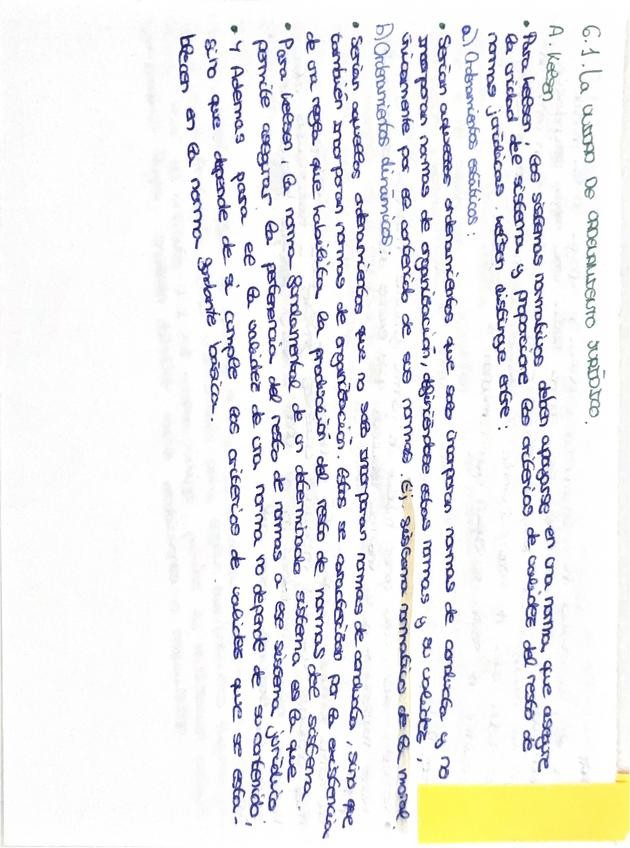 6.1. La unidad de ordenamiento jurídico.
A. Kelsen
• Para Kelsen, los sistemas normativos deben apoyarse en una norma que asegure
la unidad del sistema y proporcione los criterios de validez del resto de
normas jurídicas. Kelsen distingue entre:
a) Ordenamientos estáticos:
• Serían aquellos ordenamientos que solo incorporan normas de conducta y no
incorporan normas de organización, definiéndose estas normas y su validez,
únicamente por el contenido de sus normas. Ej. sistema normativo de la moral
b) Ordenamientos dinámicos:
• Serían aquellos ordenamientos que no solo incorporan normas de conducta, sino que
también incorporan normas de organización. Estas se caracterizan por la existencia
de una regla que habilita la producción del resto de normas del sistema.
• Para Kelsen, la norma fundamental de un determinado sistema es la que
permite asegurar la pertenencia del resto de normas a ese sistema jurídico
• Y Además para el la validez de una norma no depende de su contenido,
sino que depende de si cumple los criterios de validez que se esta-
blecen en la norma fundante básica.